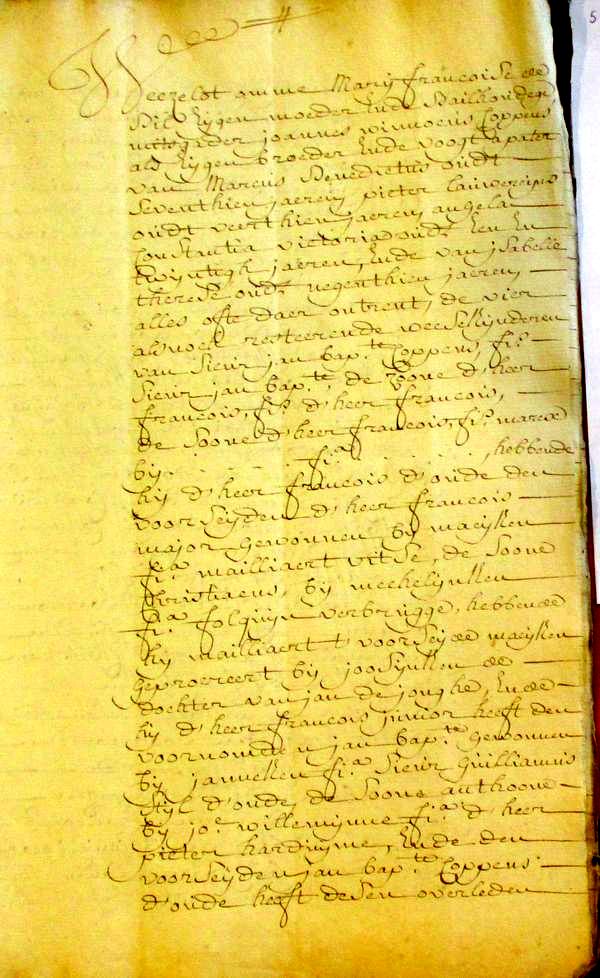 5
Weezelot omme Marij francoise de
Bil Eijgen moeder Ende Bailkondege
mitsgader joannes winnoens Coppens
als Eijgen broeder Ende voogt a pater
van Marcus Benedictus oudt
seventhien jaeren, pieter lauwerens
oudt veerthien jaeren angela
Constantia victoria oudt Een En
twijntigh jaeren, Ende van jsabelle
therese oudt negenthien jaeren,
alles ofte daer ontrent, de vier
alsnoch resteerende weesekijnderen
van Sieur jan bap.te Coppens, f.s
Sieur jan bap.te de zoone d'heer
francois, f.s d'heer francois,
de Soone d'heer francois, f.s marcx
bij . . . . f.a . . . . . , hebbende
hij d'heer francois d'oude den
voorseijden d'heer francois
major gewonnen bij maeijken
f.a mailliaert vitse, de Soone
Christiaens, bij meekelijnken
f.a folquijn verbrugge, hebbende
hij mailliaert t'voorseijde maeijken
geprocreert bij joosijnken de
dochter van jan de jonghe, Ende
hij d'heer francois junior heeft den
voornomden jan bap.te gewonnen
bij janneken f.a Sieur guilliamus
Stijl d'oude, de Soone anthoone
bij jo.e willemijnne f.a d'heer
pieter harduijne, Ende den
voorseijden jan bap.te Coppens
d'oude heeft desen overleden